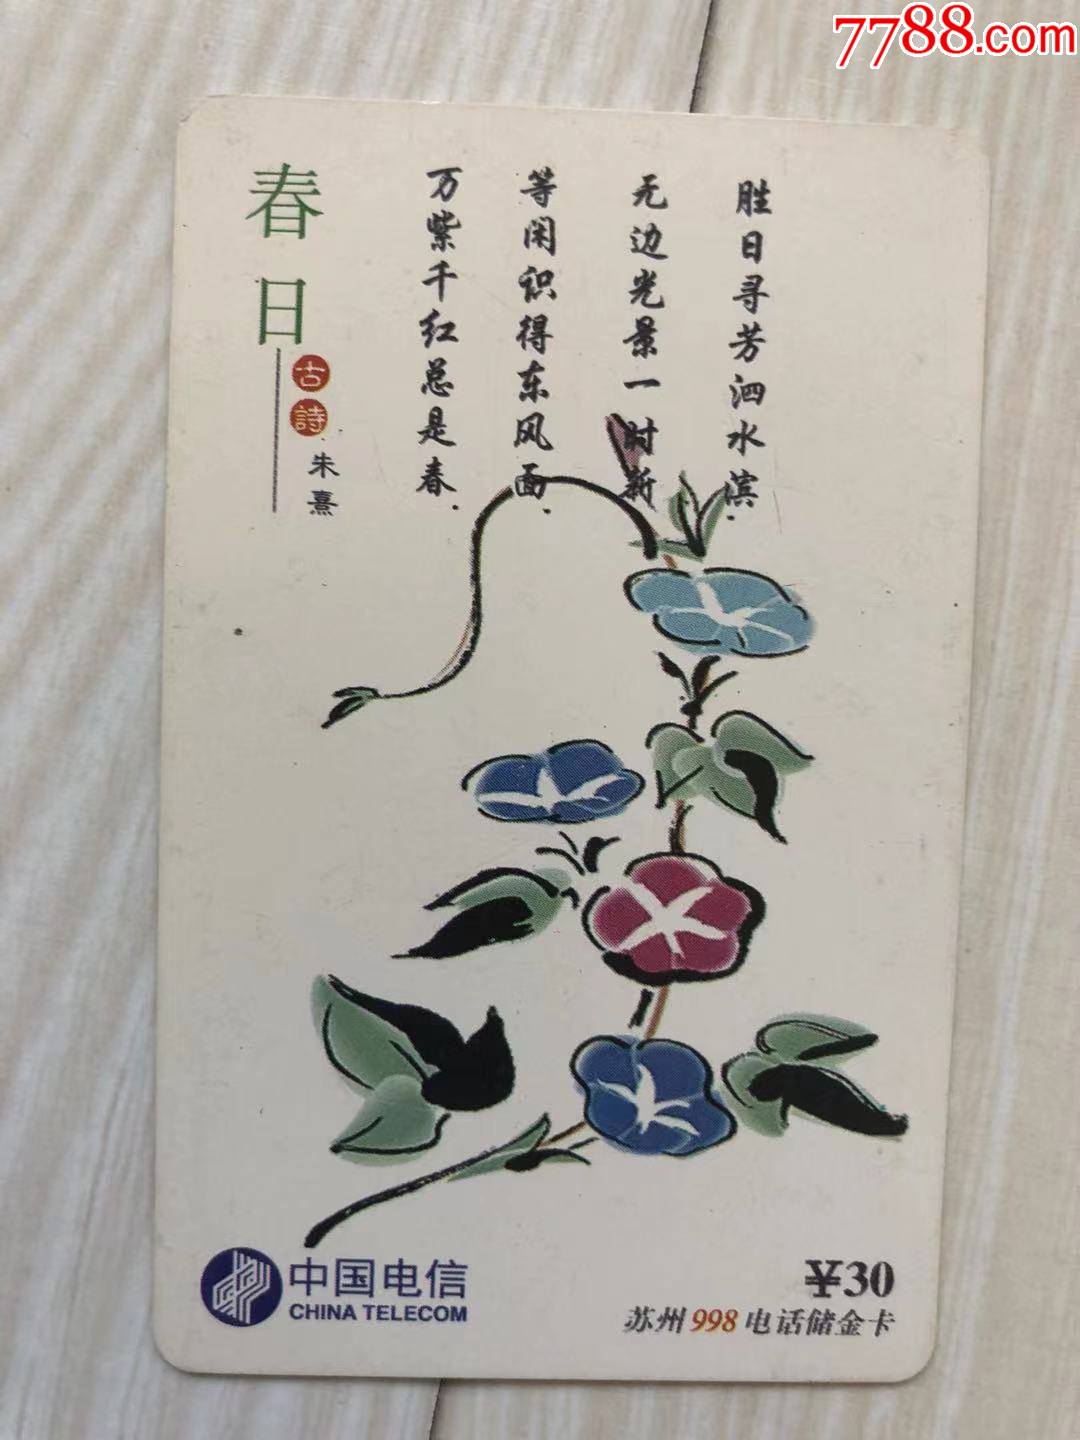 7788.com
春日
古詩
朱熹
胜日寻芳泗水滨.
无边光景一时新
等闲识得东风面.
万紫千红总是春.
中国电信
CHINA TELECOM
¥30
苏州998电话储金卡